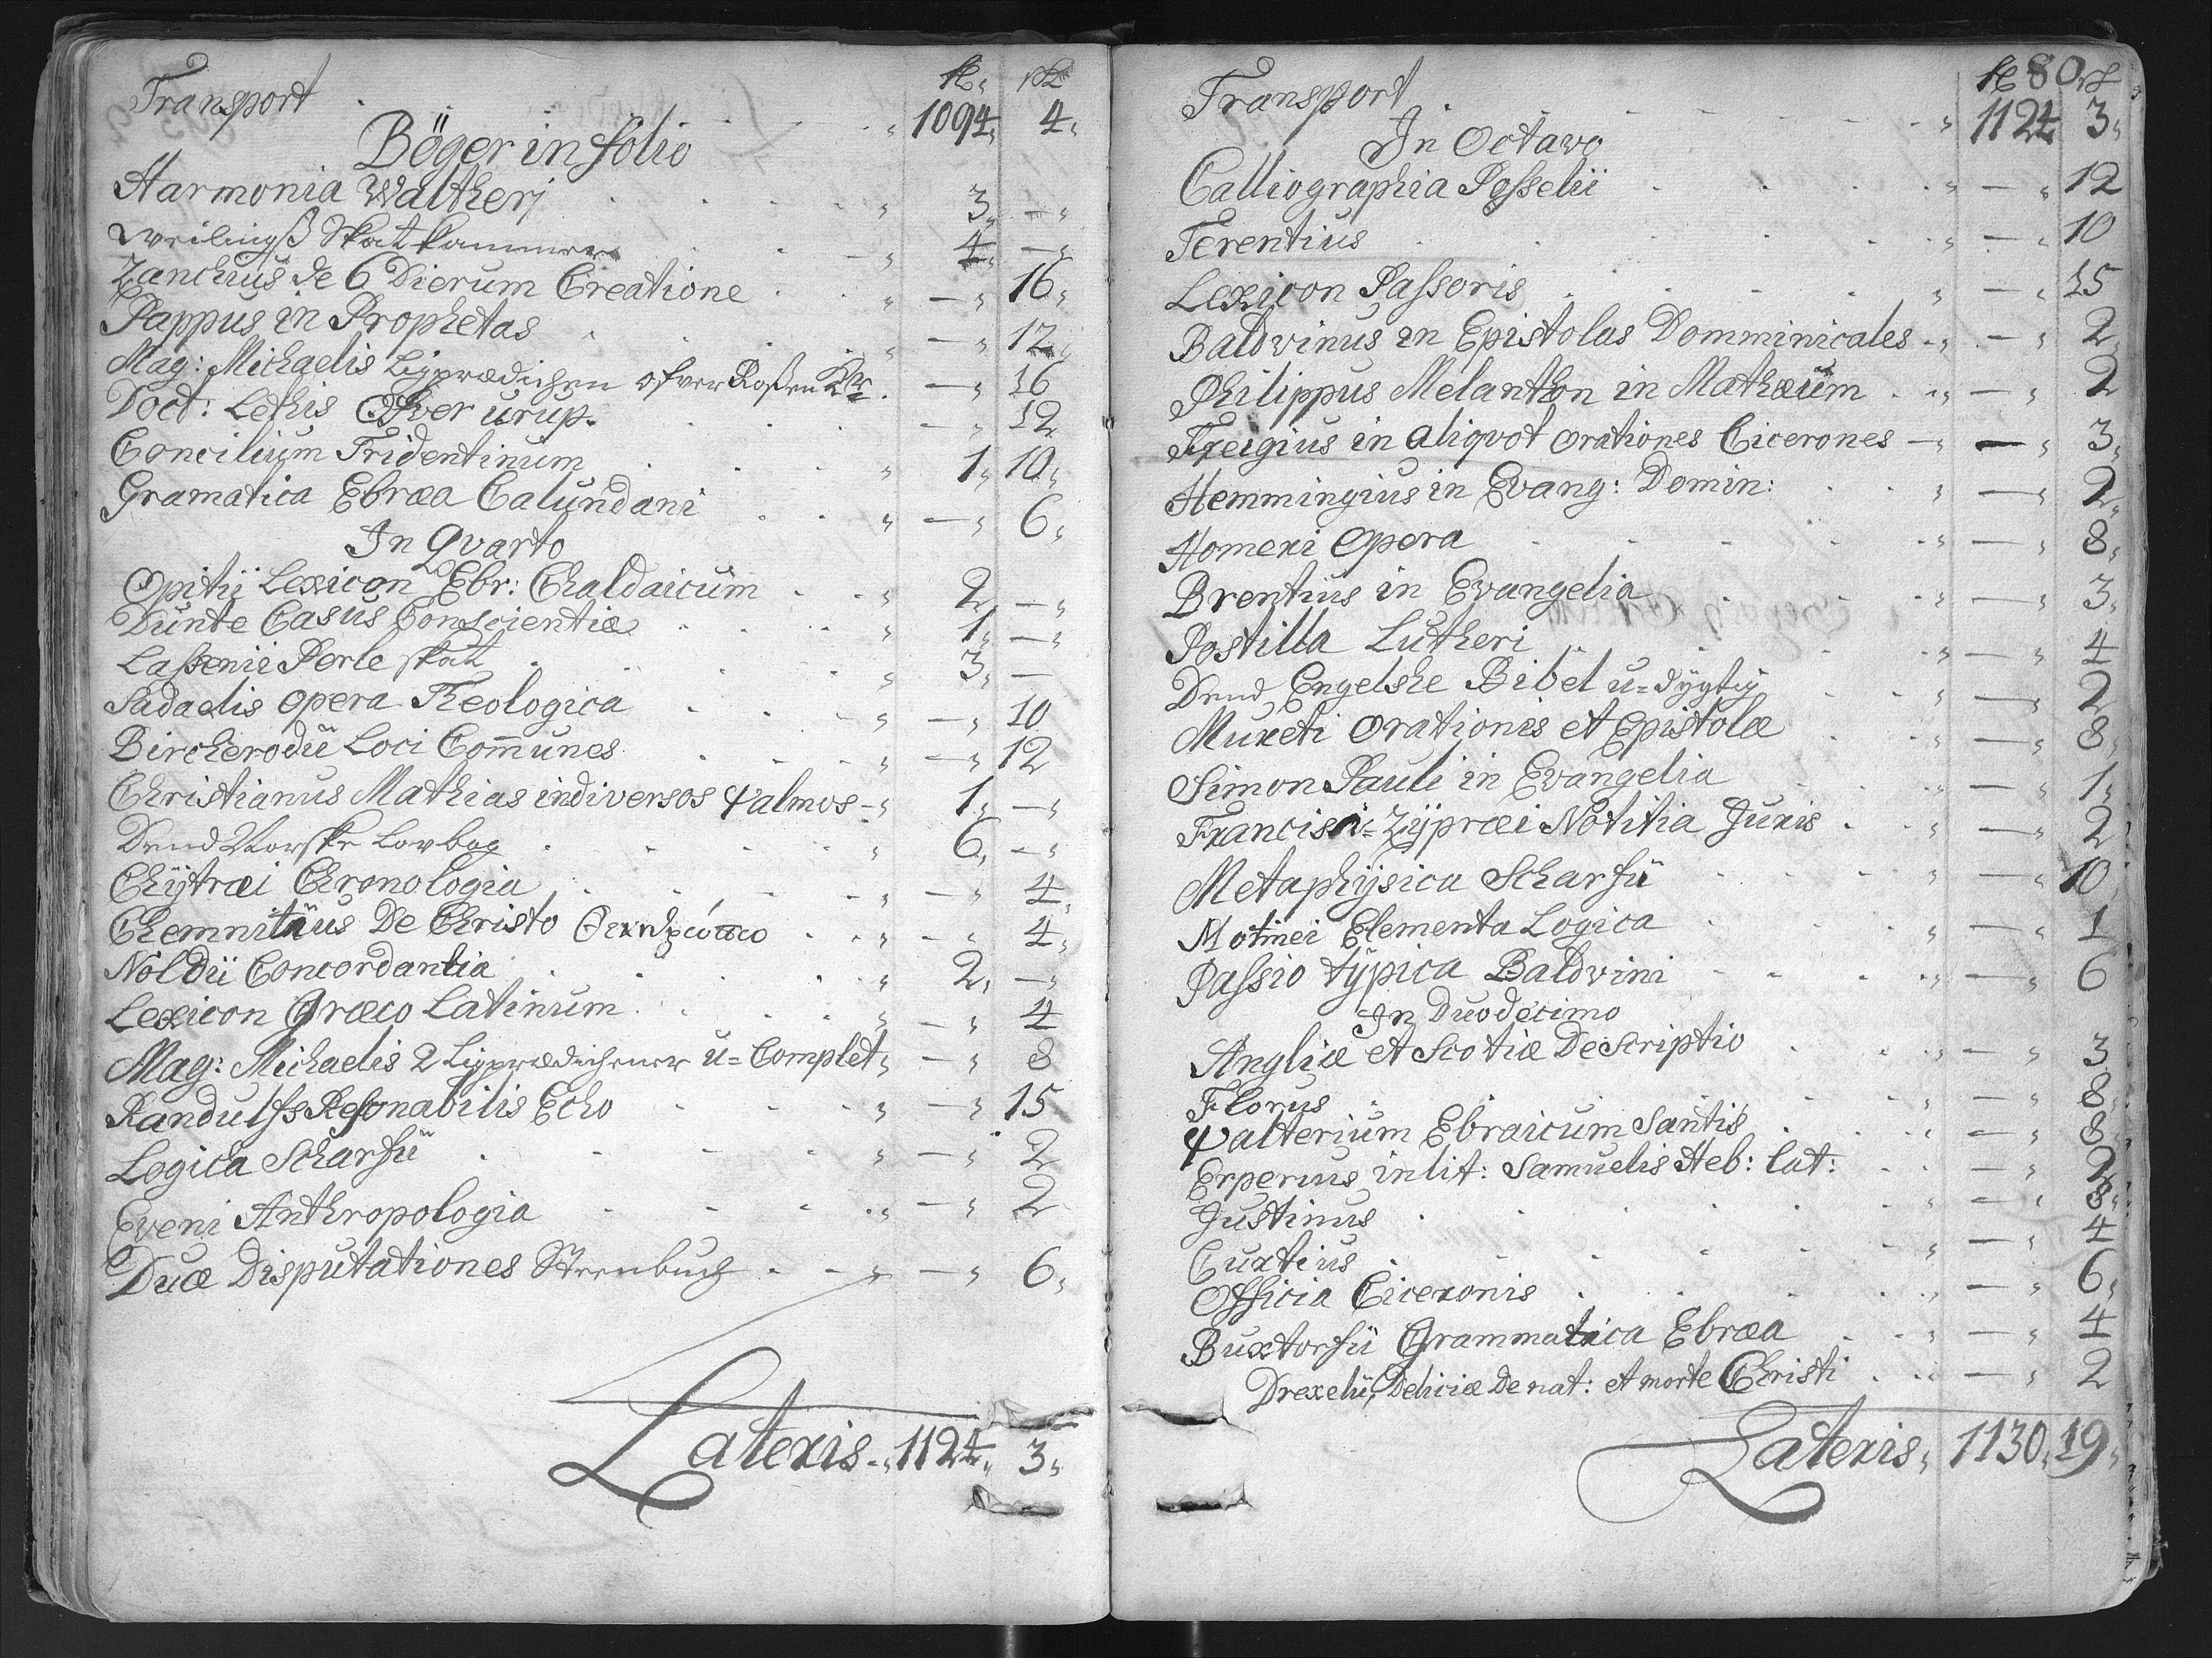 Transport 1094 4
Böger in folio
Harmonia Waltherj 3 -
Weilingß Skatkammer 4 -
Zanchius de 6 Dierum Creatione - 16
Pappus in Prophetas - 12
Mag: Michaelis Ligprædichen ofver Roßen Kr: - 16
Doct: Lethis Ofver Urup. - 12
Concilium Tridentinum 1 10
Gramatica Ebræa Calundani - 6
In Qvarto
Opitii Lexicon Ebr: Chaldaicum 2 -
Dunte Casus Conscientiæ 1 -
Lassenii Perle skat 3 -
Sadaelis Opera Theologica - 10
Bircherodii Loci Com̄unes - 12
Christianus Mathias in diversos Ψalmos 1 -
Dend Norske Lovbog 6 -
Chÿtræi Chronologia - 4
Chemnitius De Christo - 4
Noldii Concordantia 2 -
Lexicon Græco Latinum - 4
Mag: Michaelis 2 Ligprædichener u=Complet - 8
Randulfs Resonabilis Echo - 15
Logica Scharfii - 2
Eveni Anthropologia - 2
Duæ Disputationes Steenbuch - 6
Lateris 1124 3
80
Transport 1124 3
In Octavo
Calliographia Posselii - 12
Terentius - 10
Lexicon Passoris - 15
Baldvinus in Epistolas Domminicales - 2
Philippus Melanthon in Mathæum - 2
Freigius in aliqvot orationes Cicerones - 3
Hemmingius in Evang: Domin: - 2
Homeri Opera - 8
Brentius in Evangelia - 3
Postilla Lutheri - 4
Dend Engelske Bibel u=dygtig - 2
Mureti Orationis et Epistolæ - 8
Simon Pauli in Evangelia - 1
Francisi=Zÿpræi Notitia Juris - 2
Metaphÿsica Scharfii - 10
Motinei Elementa Logica - 1
Passio tÿpica Baldvini - 6
In Duodecimo
Angliæ et Scotiæ Descriptio - 3
Florus - 8
Ψalterium Ebraicum Santis - 8
Erperius in lit: Samuelis Heb: lat: - 2
Justinus - 8
Curtius - 4
Officia Ciceronis - 6
Buxtorfii Grammatica Ebræa - 4
Drexelii, Deliciæ De nat: et morte Christi - 2
Lateris 1130 19